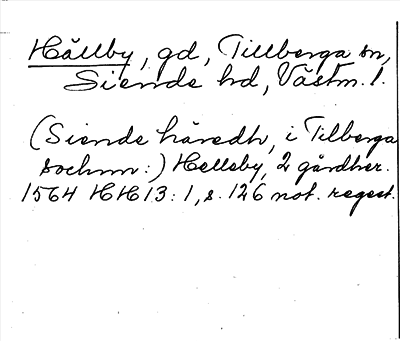 Hällby, gd, Tillberga sn,
Siende hd, Västm. l.
(Siende häredh, i Tilberga
sochnn:) Hellsby, 2 gårdher.
1564 HH 13:1, s. 126 not. regest.